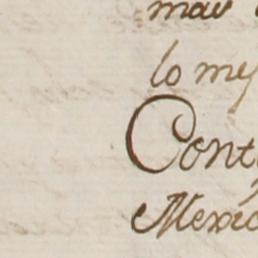 mas
lo mej
Cont
Mexic